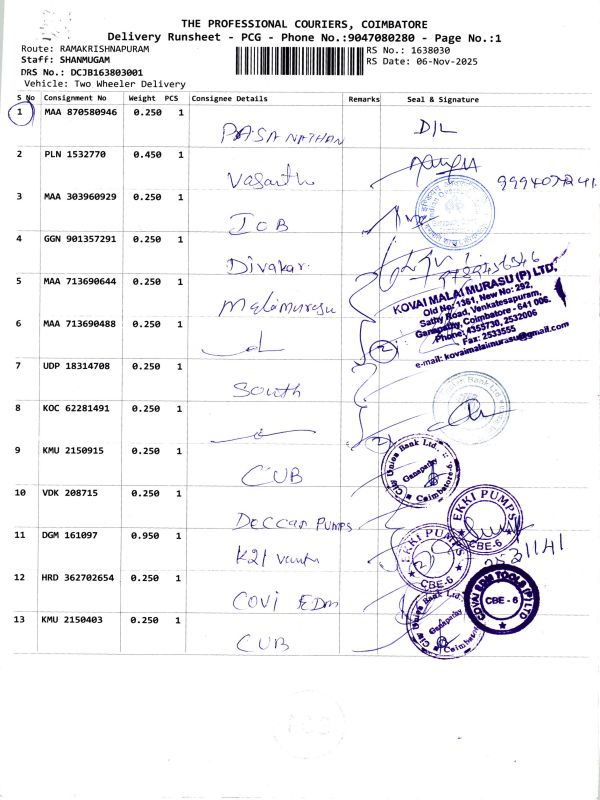 THE PROFESSIONAL COURIERS, COIMBATORE
Delivery Runsheet - PCG - Phone No.:9047080280 - Page No.:1
Route: RAMAKRISHNAPURAM
Staff: SHANMUGAM
DRS No.: DCJB163803001
Vehicle: Two Wheeler Delivery
RS No.: 1638030
RS Date: 06-Nov-2025
S No Consignment No Weight PCS Consignee Details Remarks Seal & Signature
1 MAA 870580946 0.250 1
PASANATHAN D/L
2 PLN 1532770 0.450 1
Vasanth
3 MAA 303960929 0.250 1
IOB
4 GGN 901357291 0.250 1
Divakar
5 MAA 713690644 0.250 1
Malaimurasu
KOVAI MALAI MURASU (P) LTD,
Old No: 1361, New No: 292,
Sathy Road, Venkatesapuram,
Ganapathy, Coimbatore - 641 006.
Phone: 4355730, 2532006
Fax: 2533555
e-mail: kovaimalaimurasu@gmail.com
6 MAA 713690488 0.250 1
2
7 UDP 18314708 0.250 1
South
8 KOC 62281491 0.250 1
2
9 KMU 2150915 0.250 1
CUB
City Union Bank Ltd.
Ganapathy
Coimbatore
10 VDK 208715 0.250 1
Deccan Pumps
EKKI PUMPS
CBE-6
11 DGM 161097 0.950 1
EKKI PUMPS
CBE-6
12 HRD 362702654 0.250 1
COVI EDM
COVAI EDM TOOLS (P) LTD
CBE - 6
13 KMU 2150403 0.250 1
CUB
City Union Bank Ltd.
Ganapathy
Coimbatore